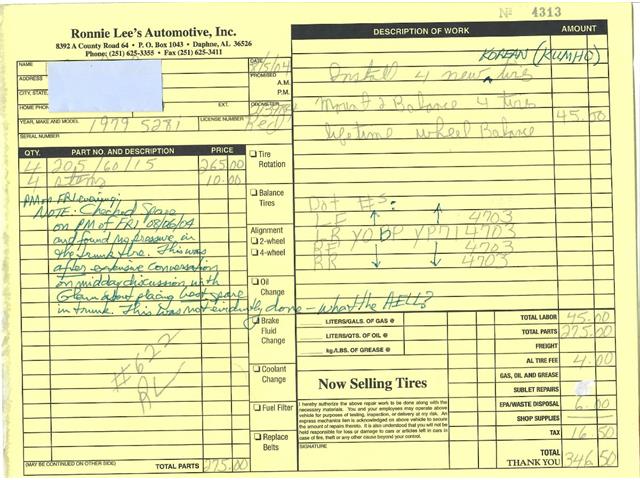 Nº 4313
Ronnie Lee's Automotive, Inc.
8392 A County Road 64 • P. O. Box 1043 • Daphne, AL 36526
Phone: (251) 625-3355 • Fax (251) 625-3411
DESCRIPTION OF WORK AMOUNT
NAME
DATE
ADDRESS
PROMISED
A.M.
P.M.
CITY, STATE,
HOME PHONE
EXT.
ODOMETER
YEAR, MAKE AND MODEL 1979 528i
LICENSE NUMBER
Red
SERIAL NUMBER
KOREAN (KUMHO)
Install 4 new tires
Mount & Balance 4 tires
45.00
lifetime wheel Balance
QTY. PART NO. AND DESCRIPTION PRICE
4 205/60/15 265.00
4 stems 10.00
PM on FRI evening:
NOTE: Checked Spare
on PM of FRI 08/06/04
and found no pressure in
the trunk tire. This was
after extensive conversation
on midday discussion with
Glenn about placing best spare
in trunk. This was not evidently done - what the HELL?
#622
Tire Rotation
Balance Tires
Alignment
2-wheel
4-wheel
Oil Change
Brake Fluid Change
Coolant Change
Fuel Filter
Replace Belts
Dot #s:
LF 4703
LR YODP YP71 4703
RF 4703
RR 4703
LITERS/GALS. OF GAS @
LITERS/QTS. OF OIL @
kg./LBS. OF GREASE @
Now Selling Tires
I hereby authorize the above repair work to be done along with the necessary materials. You and your employees may operate above vehicle for purposes of testing, inspection, or delivery at my risk. An express mechanics lien is acknowledged on above vehicle to secure the amount of repairs thereto. It is also understood that you will not be held responsible for loss or damage to cars or articles left in cars in case of fire, theft or any other cause beyond your control.
SIGNATURE
TOTAL LABOR 45.00
TOTAL PARTS 275.00
FREIGHT
AL TIRE FEE 4.00
GAS, OIL AND GREASE
SUBLET REPAIRS
EPA/WASTE DISPOSAL 6.00
SHOP SUPPLIES
TAX 16.50
TOTAL
THANK YOU 346.50
(MAY BE CONTINUED ON OTHER SIDE) TOTAL PARTS 275.00